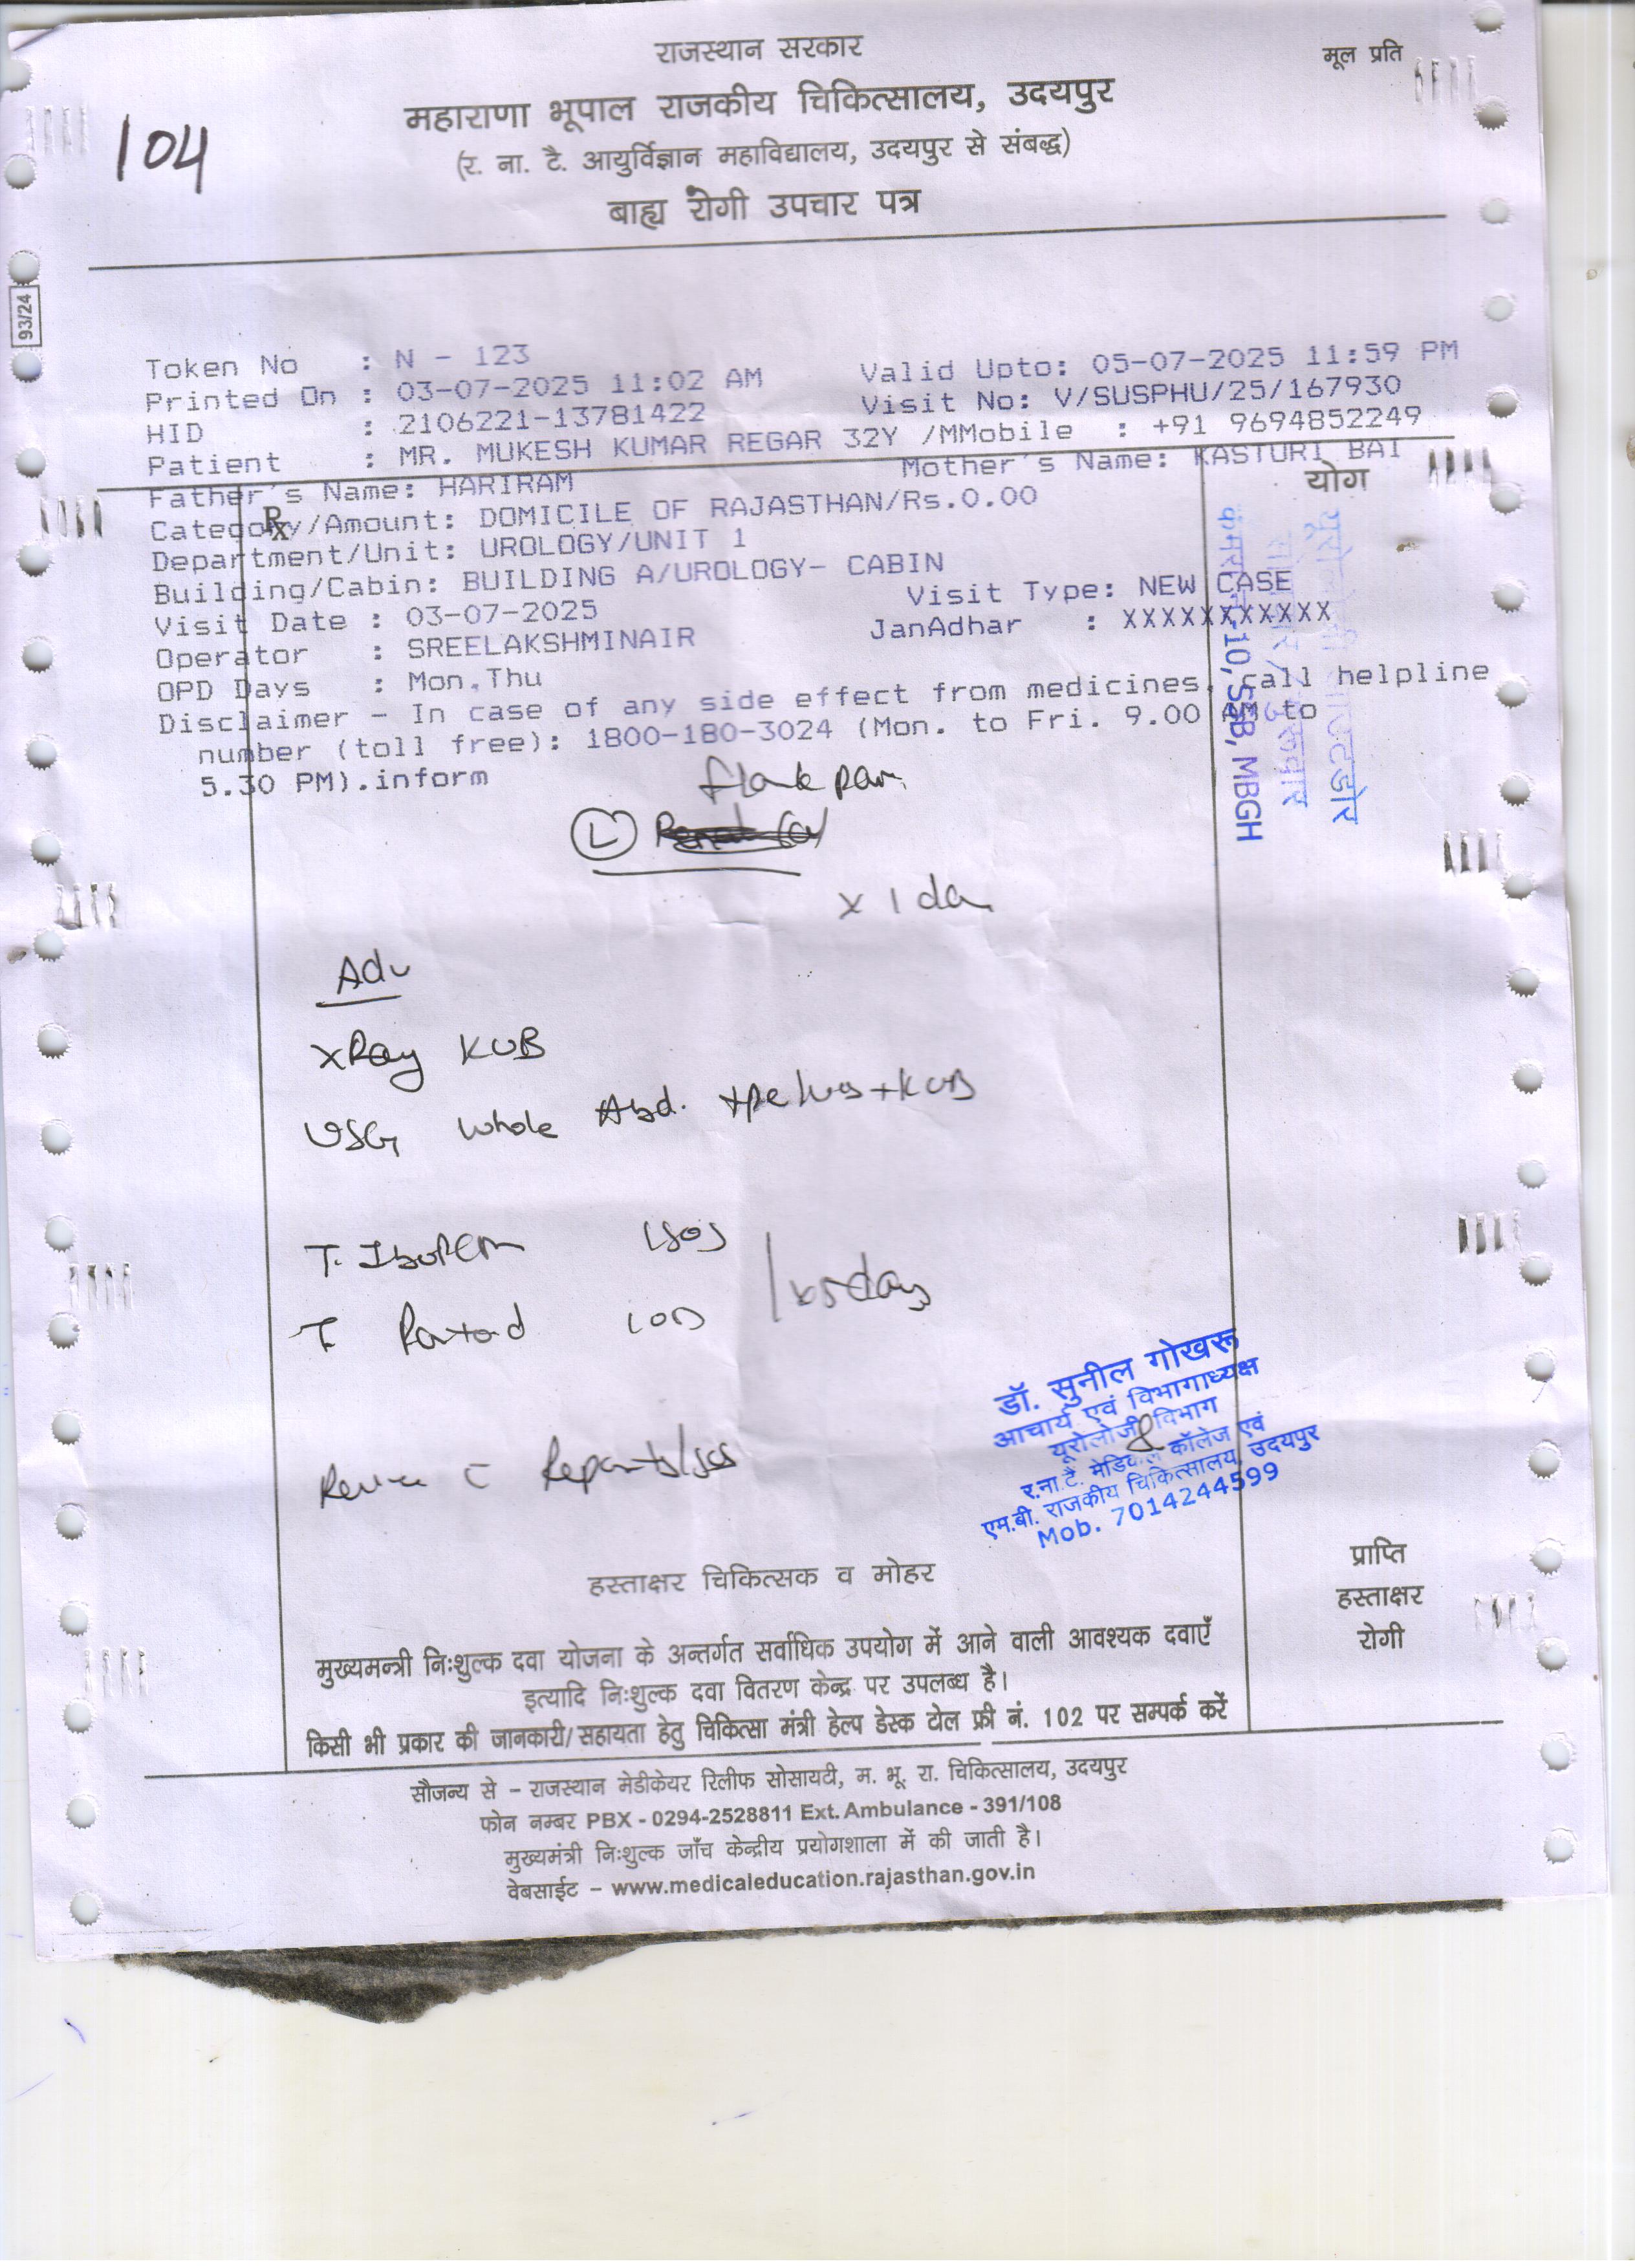 राजस्थान सरकार
मूल प्रति
महाराणा भूपाल राजकीय चिकित्सालय, उदयपुर
104
(र. ना. टै. आयुर्विज्ञान महाविद्यालय, उदयपुर से संबद्ध)
बाह्य रोगी उपचार पत्र
93/24
Token No : N - 123
Valid Upto: 05-07-2025 11:59 PM
Printed On : 03-07-2025 11:02 AM
Visit No: V/SUSPHU/25/167930
HID : 2106221-13781422
Patient : MR. MUKESH KUMAR REGAR 32Y /M Mobile : +91 9694852249
Father's Name: HARIRAM
Mother's Name: KASTURI BAI
योग
Rx
Category/Amount: DOMICILE OF RAJASTHAN/Rs.0.00
Department/Unit: UROLOGY/UNIT 1
Building/Cabin: BUILDING A/UROLOGY- CABIN
Visit Date : 03-07-2025
Visit Type: NEW CASE
Operator : SREELAKSHMINAIR
JanAdhar : XXXXXXXXXXX
OPD Days : Mon,Thu
Disclaimer - In case of any side effect from medicines, call helpline
number (toll free): 1800-180-3024 (Mon. to Fri. 9.00 to
5.30 PM).inform
10, SSB, MBGH
flank pain
L
x 1 da
Adv
XRay KUB
USG whole Abd. + pelvis + KUB
T.
T
x 5 days
Reports/sos
डॉ. सुनील गोखरू
आचार्य एवं विभागाध्यक्ष
यूरोलोजी विभाग
र.ना.टै. मेडिकल कॉलेज एवं
एम.बी. राजकीय चिकित्सालय, उदयपुर
Mob. 7014244599
हस्ताक्षर चिकित्सक व मोहर
प्राप्ति
हस्ताक्षर
रोगी
मुख्यमन्त्री निःशुल्क दवा योजना के अन्तर्गत सर्वाधिक उपयोग में आने वाली आवश्यक दवाएँ
इत्यादि निःशुल्क दवा वितरण केन्द्र पर उपलब्ध है।
किसी भी प्रकार की जानकारी/सहायता हेतु चिकित्सा मंत्री हेल्प डेस्क टोल फ्री नं. 102 पर सम्पर्क करें
सौजन्य से - राजस्थान मेडीकेयर रिलीफ सोसायटी, म. भू. रा. चिकित्सालय, उदयपुर
फोन नम्बर PBX - 0294-2528811 Ext. Ambulance - 391/108
मुख्यमंत्री निःशुल्क जाँच केन्द्रीय प्रयोगशाला में की जाती है।
वेबसाईट - www.medicaleducation.rajasthan.gov.in